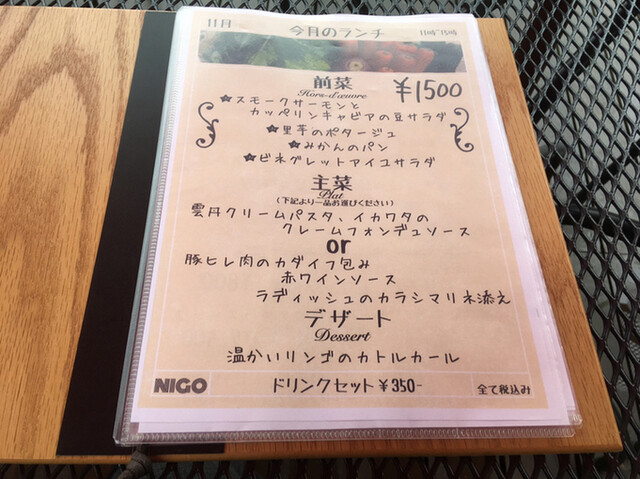 11月
今月のランチ
11時~15時
前菜
Hors-d'œuvre
¥1500
★スモークサーモンと
カッペリンキャビアの豆サラダ
★里芋のポタージュ
★みかんのパン
★ビネグレットアイユサラダ
主菜
Plat
(下記より一品お選びください)
雲丹クリームパスタ、イカワタの
クレームフォンデュソース
or
豚ヒレ肉のカダイフ包み
赤ワインソース
ラディッシュのカラシマリネ添え
デザート
Dessert
温かいリンゴのカトルカール
NIGO
ドリンクセット¥350-
全て税込み